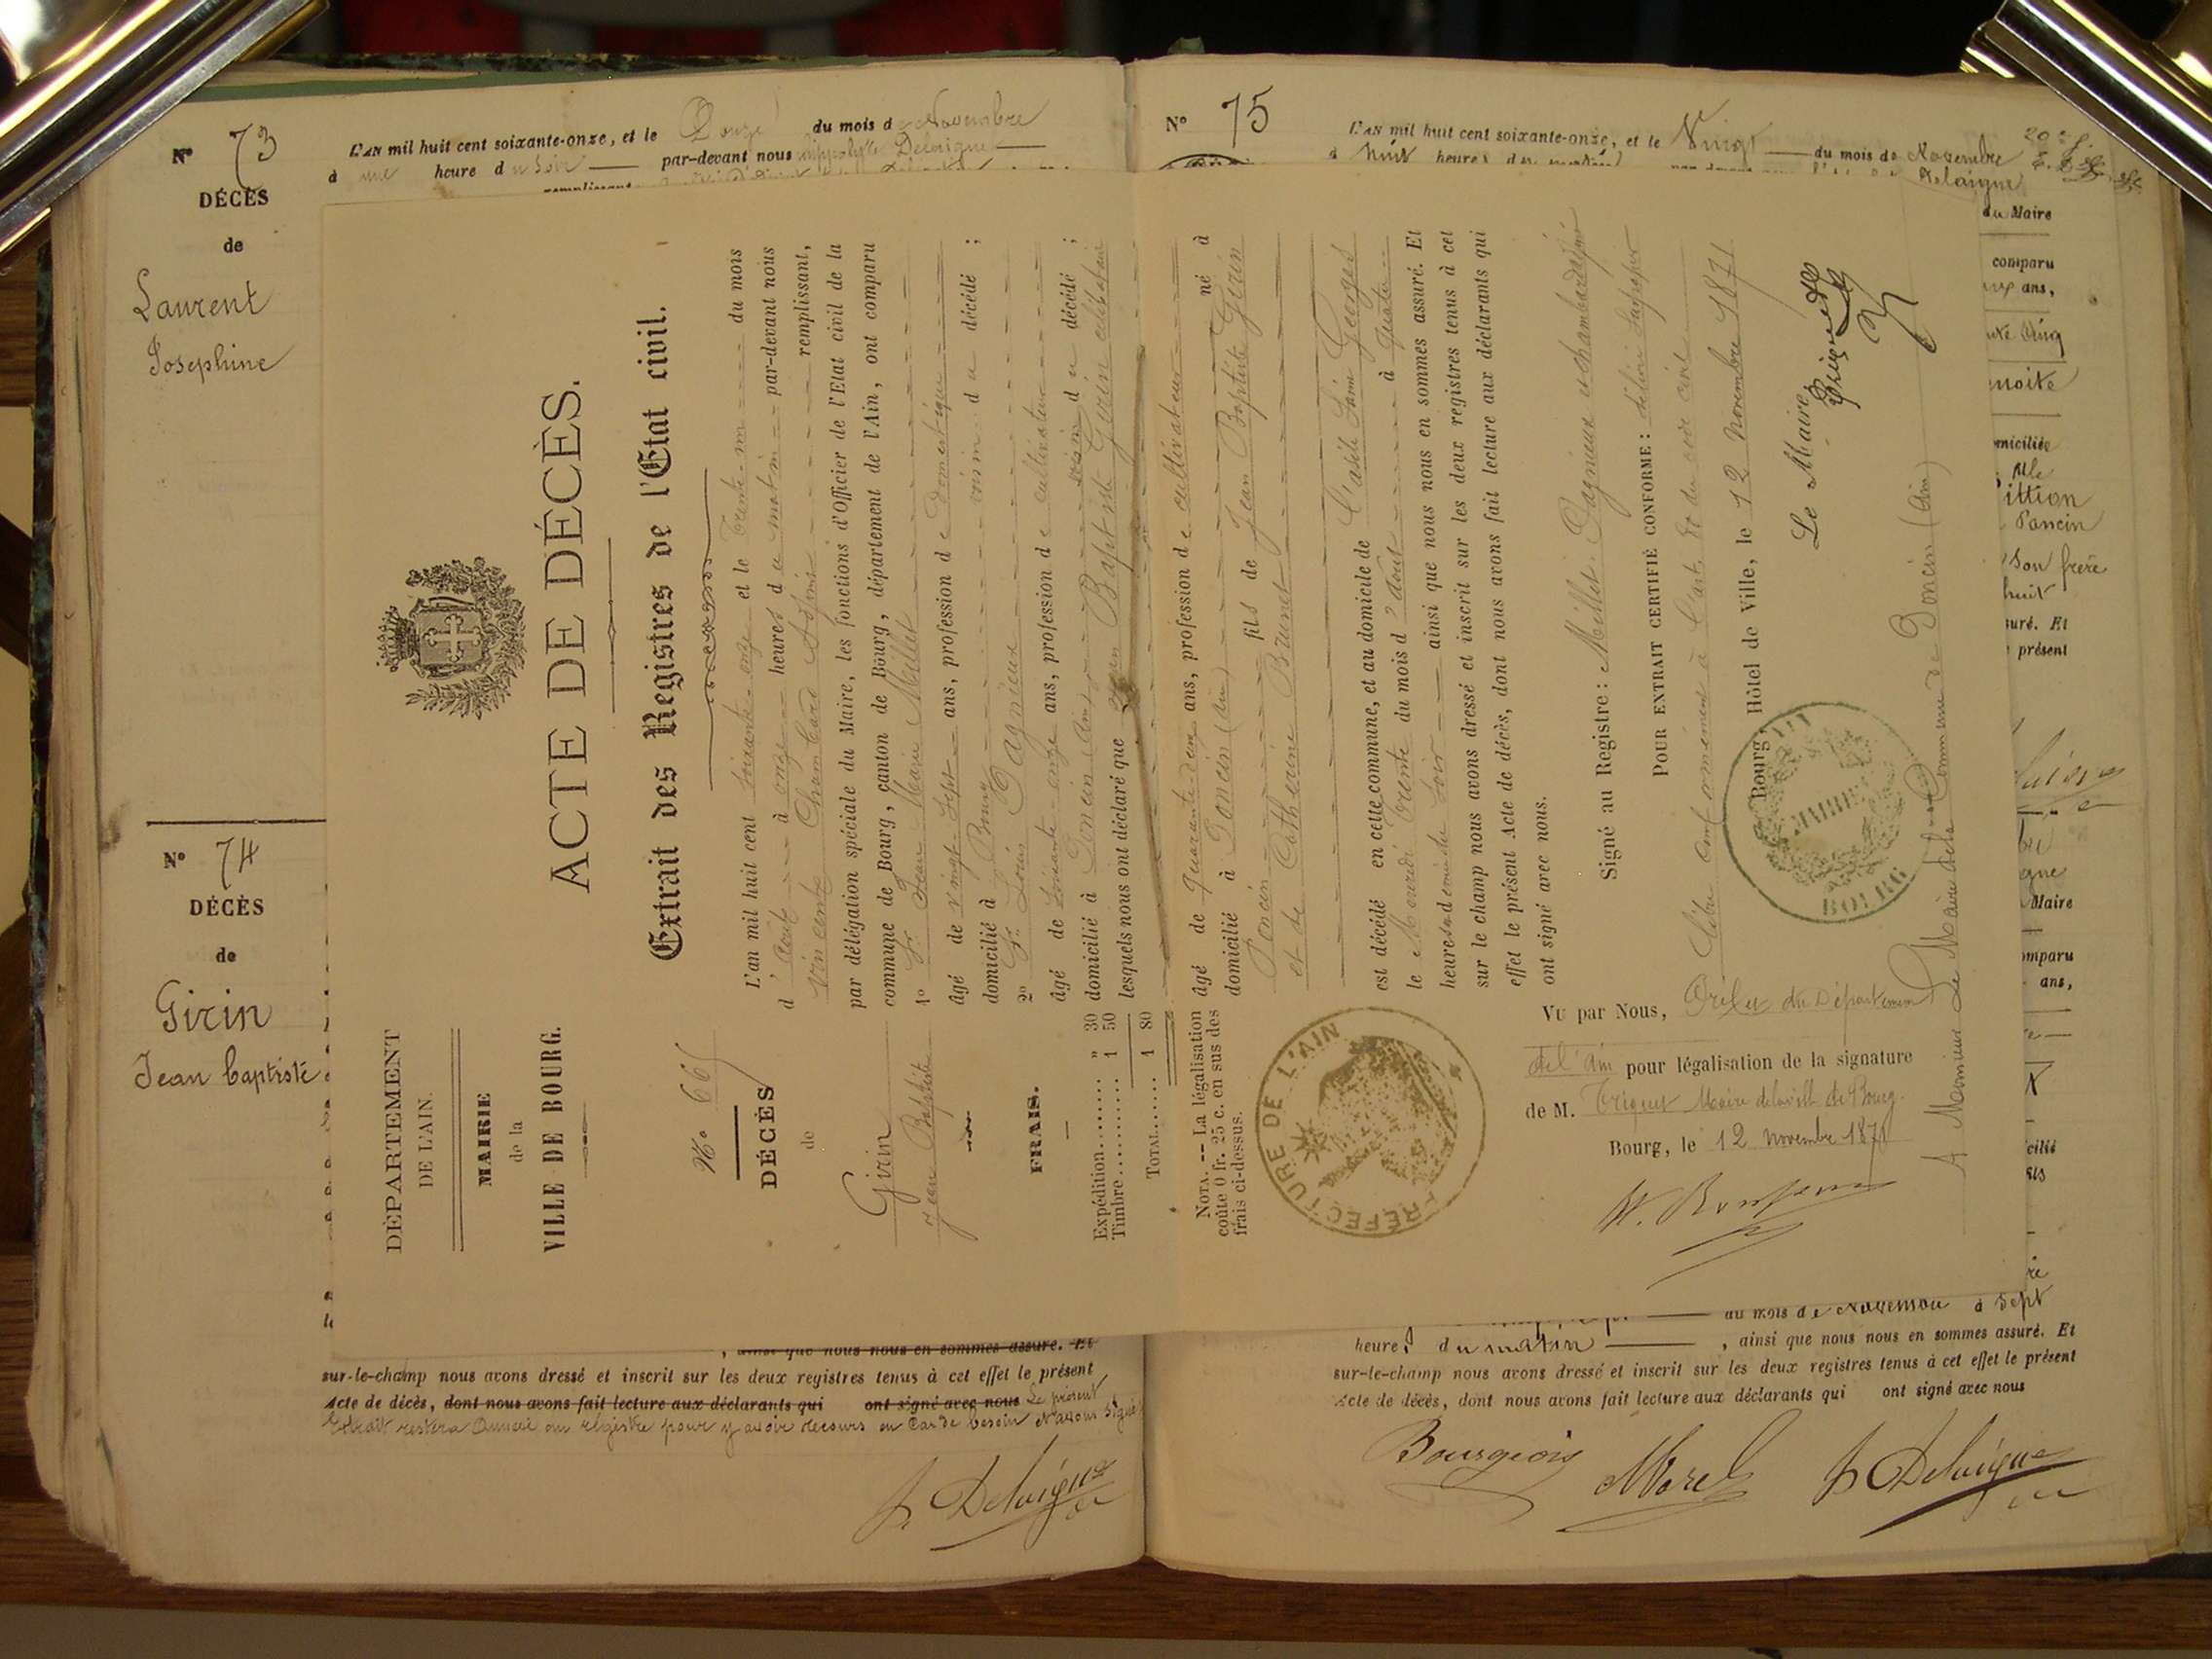 N° 73
DÉCÈS
de
Laurent
Josephine
L'AN mil huit cent soixante-onze, et le Douze du mois de Novembre
à une heure du soir par-devant nous hippolyte Delaigue
N° 74
DÉCÈS
de
Girin
Jean Baptiste
sur-le-champ nous avons dressé et inscrit sur les deux registres tenus à cet effet le présent
Acte de décès, dont nous avons fait lecture aux déclarants qui ont signé avec nous Le présent
Extrait restera annexé au registre pour y avoir recours en cas de besoin
Delaigue
DÉPARTEMENT
DE L'AIN.
MAIRIE
de la
VILLE DE BOURG.
N° 665
DÉCÈS
de
Girin
Jean Baptiste
FRAIS.
Expédition......... » 30
Timbre........... 1 50
TOTAL...... 1 80
NOTA. — La légalisation
coûte 0 fr. 25 c. en sus des
frais ci-dessus.
PRÉFECTURE DE L'AIN
ACTE DE DÉCÈS.
Extrait des Registres de l'État civil.
L'an mil huit cent soixante-onze et le trente-un du mois
d'août à onze heures du matin par-devant nous
Vincent Chambard remplissant,
par délégation spéciale du Maire, les fonctions d'Officier de l'Etat civil de la
commune de Bourg, canton de Bourg, département de l'Ain, ont comparu
1° Sr Jean Marie Millet
âgé de vingt-sept ans, profession de Domestique
domicilié à Bourg voisin du décédé ;
2° Sr Louis Pagnieux
âgé de soixante onze ans, profession de cultivateur
domicilié à Poncin (Ain) voisin du décédé ;
lesquels nous ont déclaré que Jean Baptiste Girin célibataire
âgé de Quarante deux ans, profession de cultivateur né à
domicilié à Poncin (Ain) fils de Jean Baptiste Girin
et de Catherine Brunet
est décédé en cette commune, et au domicile de l'asile Saint Georges
le Mercredi trente du mois d'août à quatre
heures du soir ainsi que nous nous en sommes assuré. Et
sur le champ nous avons dressé et inscrit sur les deux registres tenus à cet
effet le présent Acte de décès, dont nous avons fait lecture aux déclarants qui
ont signé avec nous.
Signé au Registre : Millet. Pagnieux et chambard adjoint
POUR EXTRAIT CERTIFIÉ CONFORME : délivré sur papier
libre conformément à l'art. 80 du code civil
Bourg, Hôtel de Ville, le 12 Novembre 1871
Le Maire,
MAIRIE
BOURG
AIN
Vu par Nous, Préfet du Département
de l'Ain pour légalisation de la signature
de M. Maire de la ville de Bourg.
Bourg, le 12 novembre 1871
A Monsieur le Maire de la Commune de Poncin (Ain)
N° 75
L'AN mil huit cent soixante-onze, et le Vingt du mois de Novembre
à huit heures du matin
Delaigue
du Maire
comparu
ans,
son frère
huit
assuré. Et
présent
Maire
comparu
ans,
du mois de Novembre à sept
heures du matin, ainsi que nous nous en sommes assuré. Et
sur-le-champ nous avons dressé et inscrit sur les deux registres tenus à cet effet le présent
Acte de décès, dont nous avons fait lecture aux déclarants qui ont signé avec nous
Bourgeois Morel Delaigue